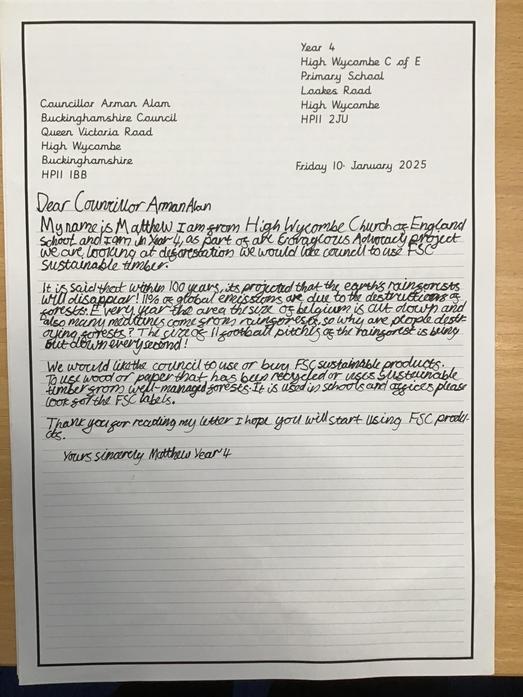 Year 4
High Wycombe C of E
Primary School
Loakes Road
High Wycombe
HP11 2JU
Councillor Arman Alam
Buckinghamshire Council
Queen Victoria Road
High Wycombe
Buckinghamshire
HP11 1BB
Friday 10 January 2025
Dear Councillor Arman Alan
My name is Matthew I am from High Wycombe Church of England
School and I am in Year 4, as part of are Advocacy project
we are looking at deforestation we would like council to use FSC
sustainable timber.
It is said that within 100 years, its projected that the earths rainforists
will disappear! 11% of global emissions are due to the destructions of
forests. Every year the area the size of belgium is cut down and
also many medicines come from rainforests, so why are people destr
oying forests? The size of 11 football pitchs of the rainforest is being
cut down every second!
We would like the council to use or buy FSC sustainable products.
To use wood or paper that has been recycled or uses sustainable
timber from well-managed forests. It is used in schools and offices please
look for the FSC labels.
Thank you for reading my letter I hope you will start using FSC produ-
cts.
Yours sincerely Matthew Year 4